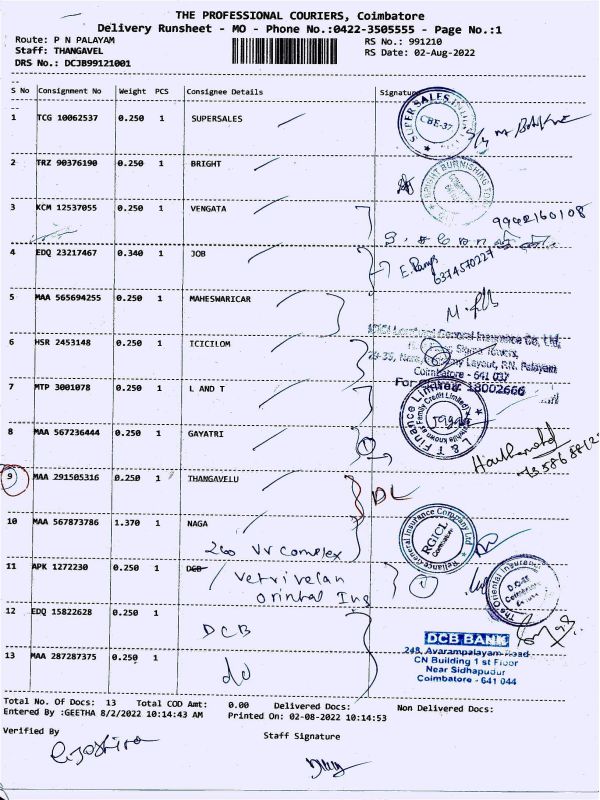 THE PROFESSIONAL COURIERS, Coimbatore
Delivery Runsheet - MO - Phone No.:0422-3505555 - Page No.:1
Route: P N PALAYAM
RS No.: 991210
Staff: THANGAVEL
RS Date: 02-Aug-2022
DRS No.: DCJB99121001
S No Consignment No Weight PCS Consignee Details Signature
1 TCG 10062537 0.250 1 SUPERSALES
CBE-37
2 TRZ 90376190 0.250 1 BRIGHT
3 KCM 12537055 0.250 1 VENGATA
9942160108
4 EDQ 23217467 0.340 1 JOB
6374570227
5 MAA 565694255 0.250 1 MAHESWARICAR
ICICI Lombard General Insurance Co. Ltd.
6 HSR 2453148 0.250 1 ICICILOM
Coimbatore - 641 037
7 MTP 3001078 0.250 1 L AND T
18002666
L & T Finance Limited
8 MAA 567236444 0.250 1 GAYATRI
9 MAA 291505316 0.250 1 THANGAVELU
DL
10 MAA 567873786 1.370 1 NAGA
Reliance General Insurance Company Ltd
RGICL
Coimbatore
260 VV Complex
11 APK 1272230 0.250 1 DCB
Vetrivelan
Orintal Ins
The Oriental Insurance
12 EDQ 15822628 0.250 1
DCB
DCB BANK
248, Avarampalayam Road
CN Building 1 st Floor
Near Sidhapudur
Coimbatore - 641 044
13 MAA 287287375 0.250 1
do
Total No. Of Docs: 13 Total COD Amt: 0.00 Delivered Docs: Non Delivered Docs:
Entered By :GEETHA 8/2/2022 10:14:43 AM Printed On: 02-08-2022 10:14:53
Verified By
Staff Signature